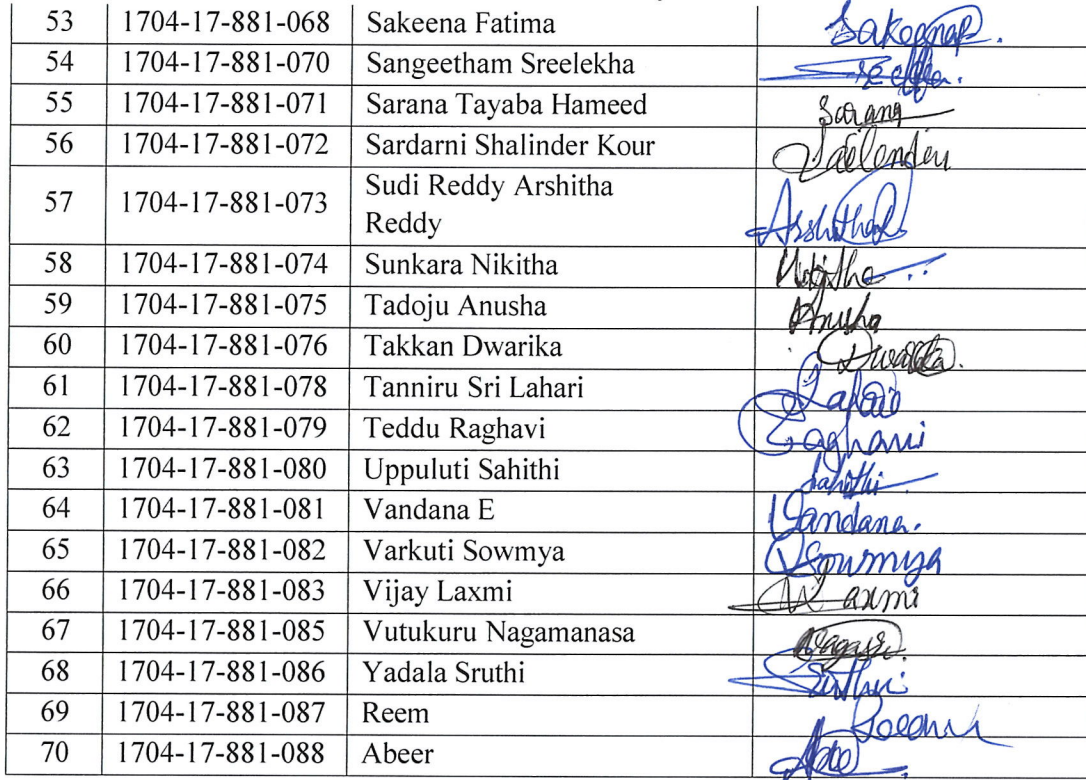 53 1704-17-881-068 Sakeena Fatima Sakeenaf.
54 1704-17-881-070 Sangeetham Sreelekha
55 1704-17-881-071 Sarana Tayaba Hameed Sarana
56 1704-17-881-072 Sardarni Shalinder Kour
57 1704-17-881-073 Sudi Reddy Arshitha
Reddy
58 1704-17-881-074 Sunkara Nikitha Nikitha
59 1704-17-881-075 Tadoju Anusha Anusha
60 1704-17-881-076 Takkan Dwarika Dwarika.
61 1704-17-881-078 Tanniru Sri Lahari
62 1704-17-881-079 Teddu Raghavi Raghavi
63 1704-17-881-080 Uppuluti Sahithi Sahithi
64 1704-17-881-081 Vandana E Vandana.
65 1704-17-881-082 Varkuti Sowmya VSowmya
66 1704-17-881-083 Vijay Laxmi Laxmi
67 1704-17-881-085 Vutukuru Nagamanasa
68 1704-17-881-086 Yadala Sruthi Sruthi
69 1704-17-881-087 Reem
70 1704-17-881-088 Abeer